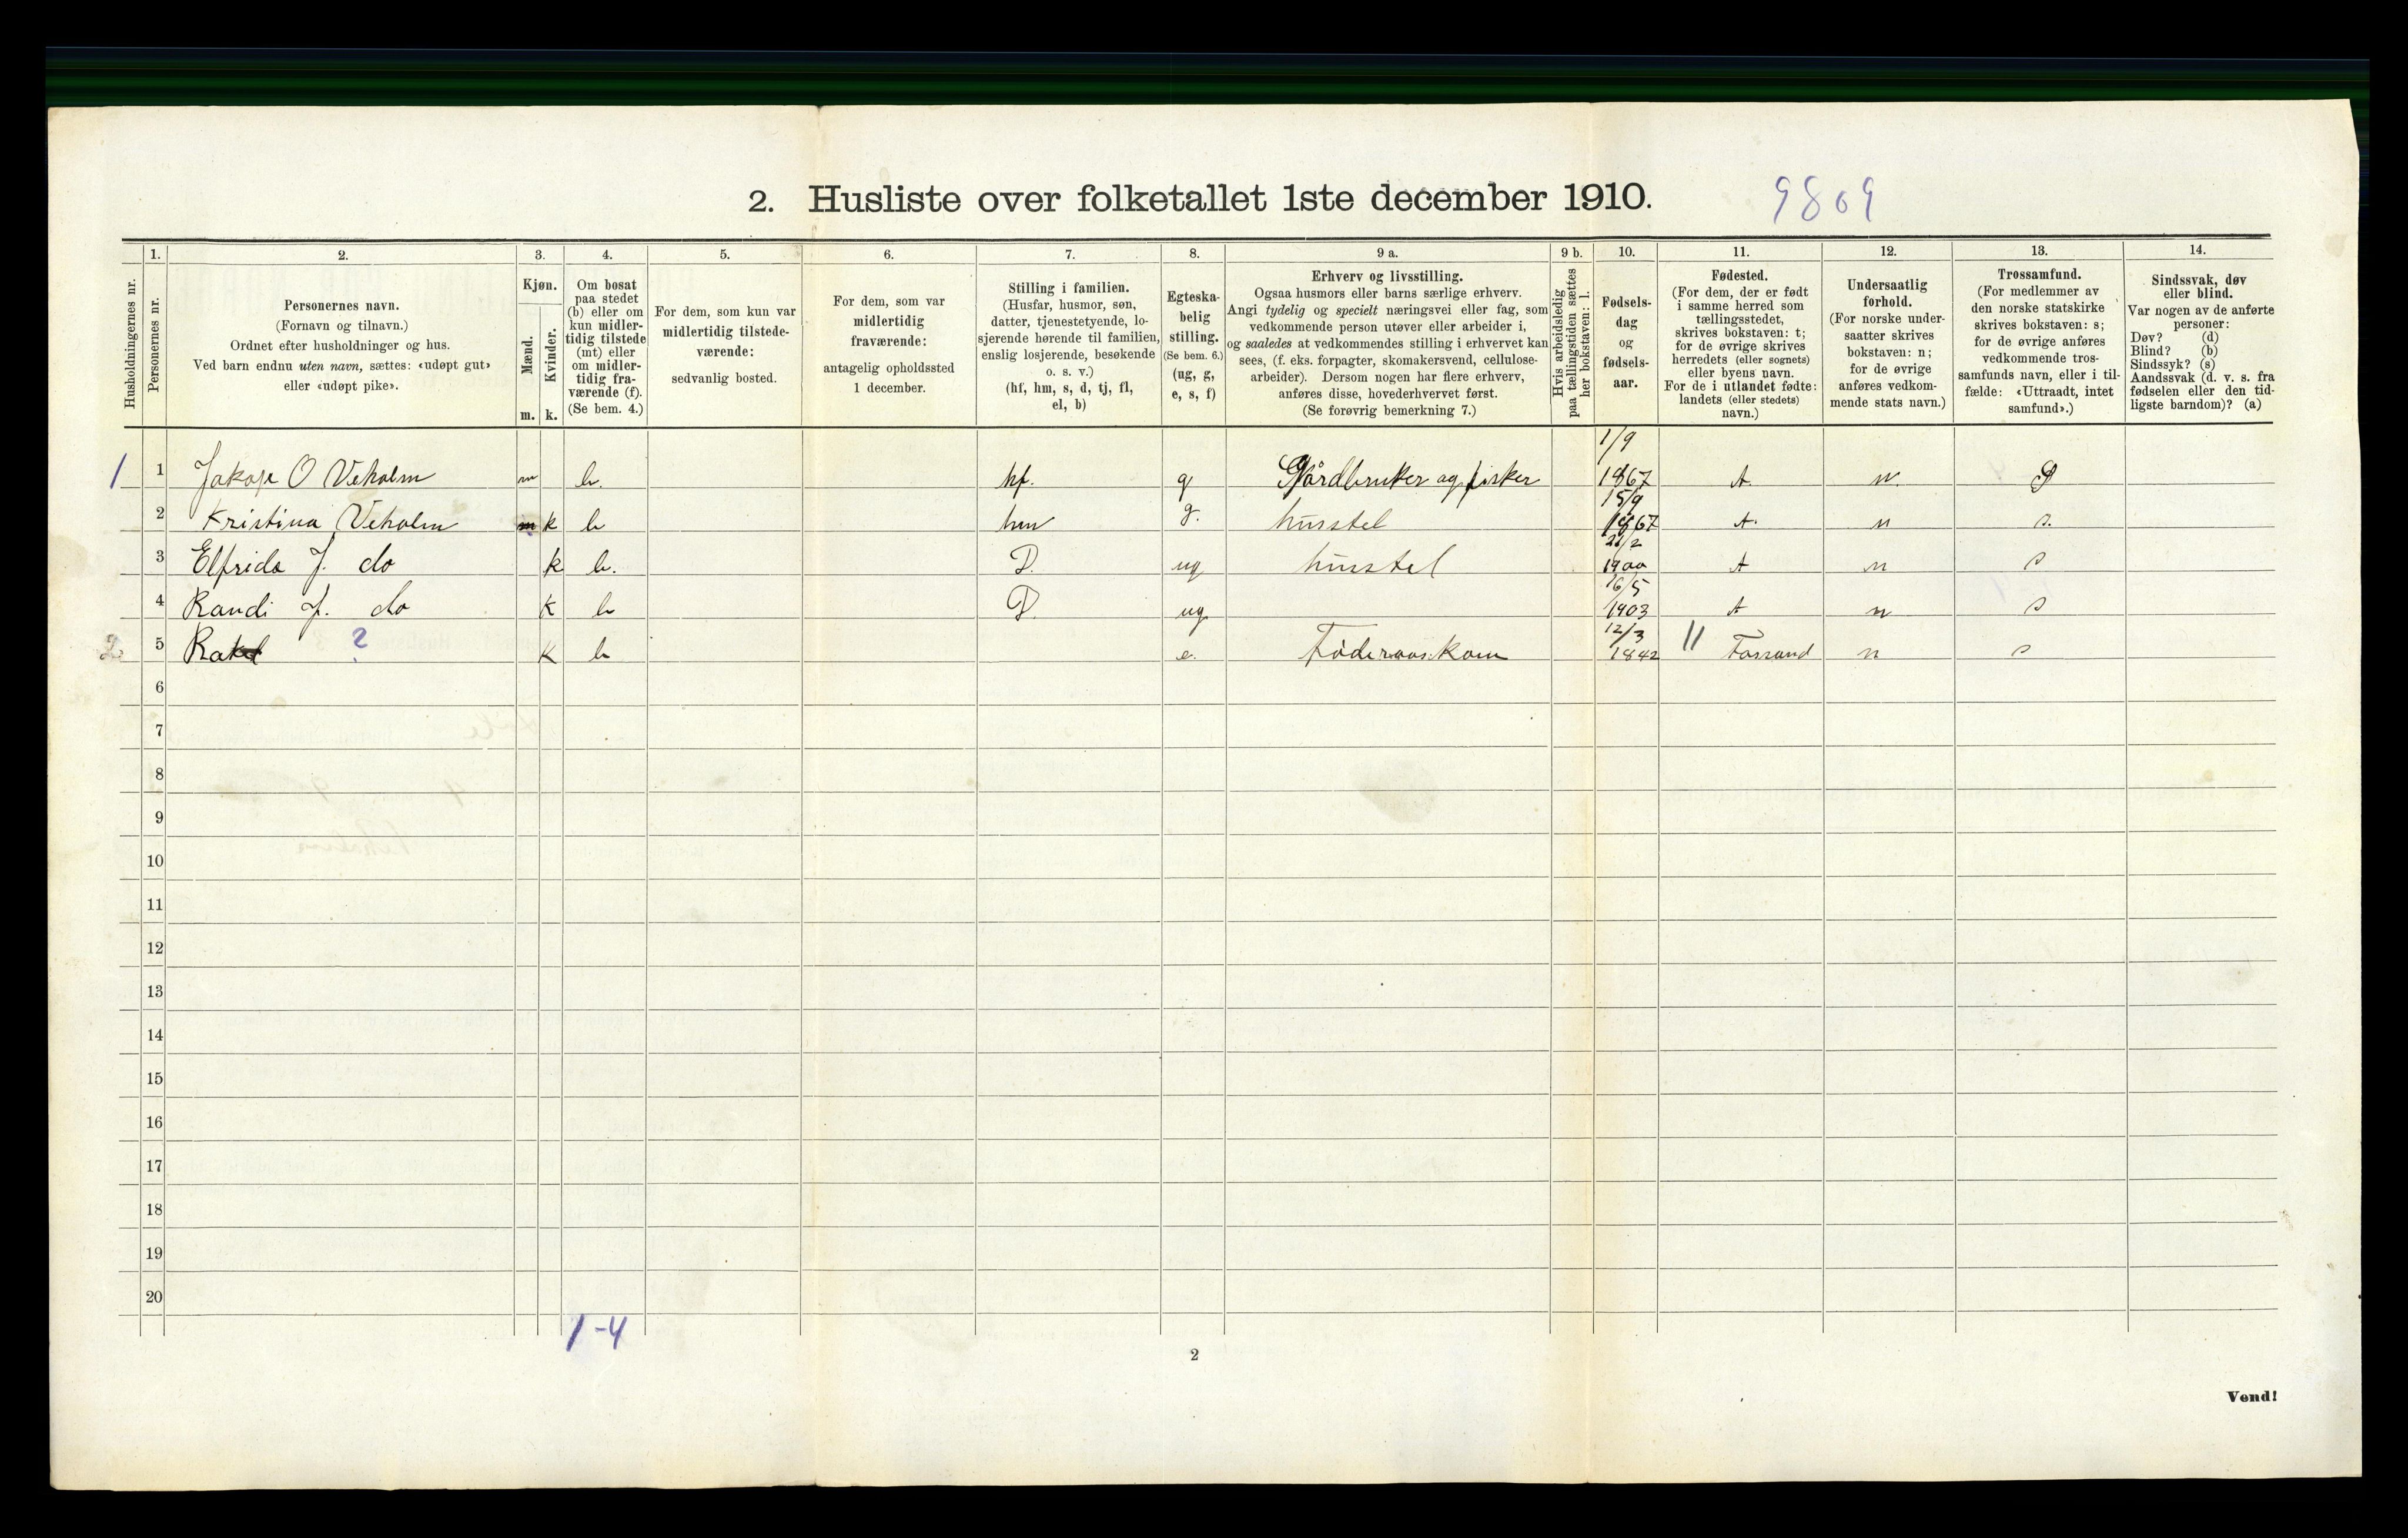 2. Husliste over folketallet 1ste december 1910.
9809
Husholdningernes nr.
1.
Personernes nr.
2.
Personernes navn.
(Fornavn og tilnavn.)
Ordnet efter husholdninger og hus.
Ved barn endnu uten navn, sættes: «udøpt gut»
eller «udøpt pike».
3.
Kjøn.
Mænd.
Kvinder.
m. k.
4.
Om bosat
paa stedet
(b) eller om
kun midler-
tidig tilstede
(mt) eller
om midler-
tidig fra-
værende (f).
(Se bem. 4.)
5.
For dem, som kun var
midlertidig tilstede-
værende:
sedvanlig bosted.
6.
For dem, som var
midlertidig
fraværende:
antagelig opholdssted
1 december.
7.
Stilling i familien.
(Husfar, husmor, søn,
datter, tjenestetyende, lo-
sjerende hørende til familien,
enslig losjerende, besøkende
o. s. v.)
(hf, hm, s, d, tj, fl,
el, b)
8.
Egteska-
belig
stilling.
(Se bem. 6.)
(ug, g,
e, s, f)
9 a.
Erhverv og livsstilling.
Ogsaa husmors eller barns særlige erhverv.
Angi tydelig og specielt næringsvei eller fag, som
vedkommende person utøver eller arbeider i,
og saaledes at vedkommendes stilling i erhvervet kan
sees, (f. eks. forpagter, skomakersvend, cellulose-
arbeider). Dersom nogen har flere erhverv,
anføres disse, hovederhvervet først.
(Se forøvrig bemerkning 7.)
9 b.
Hvis arbeidsledig
paa tællingstiden sættes
her bokstaven: l.
10.
Fødsels-
dag
og
fødsels-
aar.
11.
Fødested.
(For dem, der er født
i samme herred som
tællingsstedet,
skrives bokstaven: t;
for de øvrige skrives
herredets (eller sognets)
eller byens navn.
For de i utlandet fødte:
landets (eller stedets)
navn.)
12.
Undersaatlig
forhold.
(For norske under-
saatter skrives
bokstaven: n;
for de øvrige
anføres vedkom-
mende stats navn.)
13.
Trossamfund.
(For medlemmer av
den norske statskirke
skrives bokstaven: s;
for de øvrige anføres
vedkommende tros-
samfunds navn, eller i til-
fælde: «Uttraadt, intet
samfund».)
14.
Sindssvak, døv
eller blind.
Var nogen av de anførte
personer:
Døv? (d)
Blind? (b)
Sindssyk? (s)
Aandssvak (d. v. s. fra
fødselen eller den tid-
ligste barndom)? (a)
1 1 Jakop O Veholm m b. hf. g Gårdbruker og fisker 1/9 1867 t. n. S
2 Kristina Veholm k b hm g. husstel 15/9 1867 t. n s.
3 Elfrida J. do k b. D. ug husstel 21/2 1900 t n s
4 Randi J. do k b D. ug 16/5 1903 t n s
2 5 Rakel ? k b e. Føderaaskone 12/3 1842 11 Fossand n s
6
7
8
9
10
11
12
13
14
15
16
17
18
19
20
1-4
2
Vend!